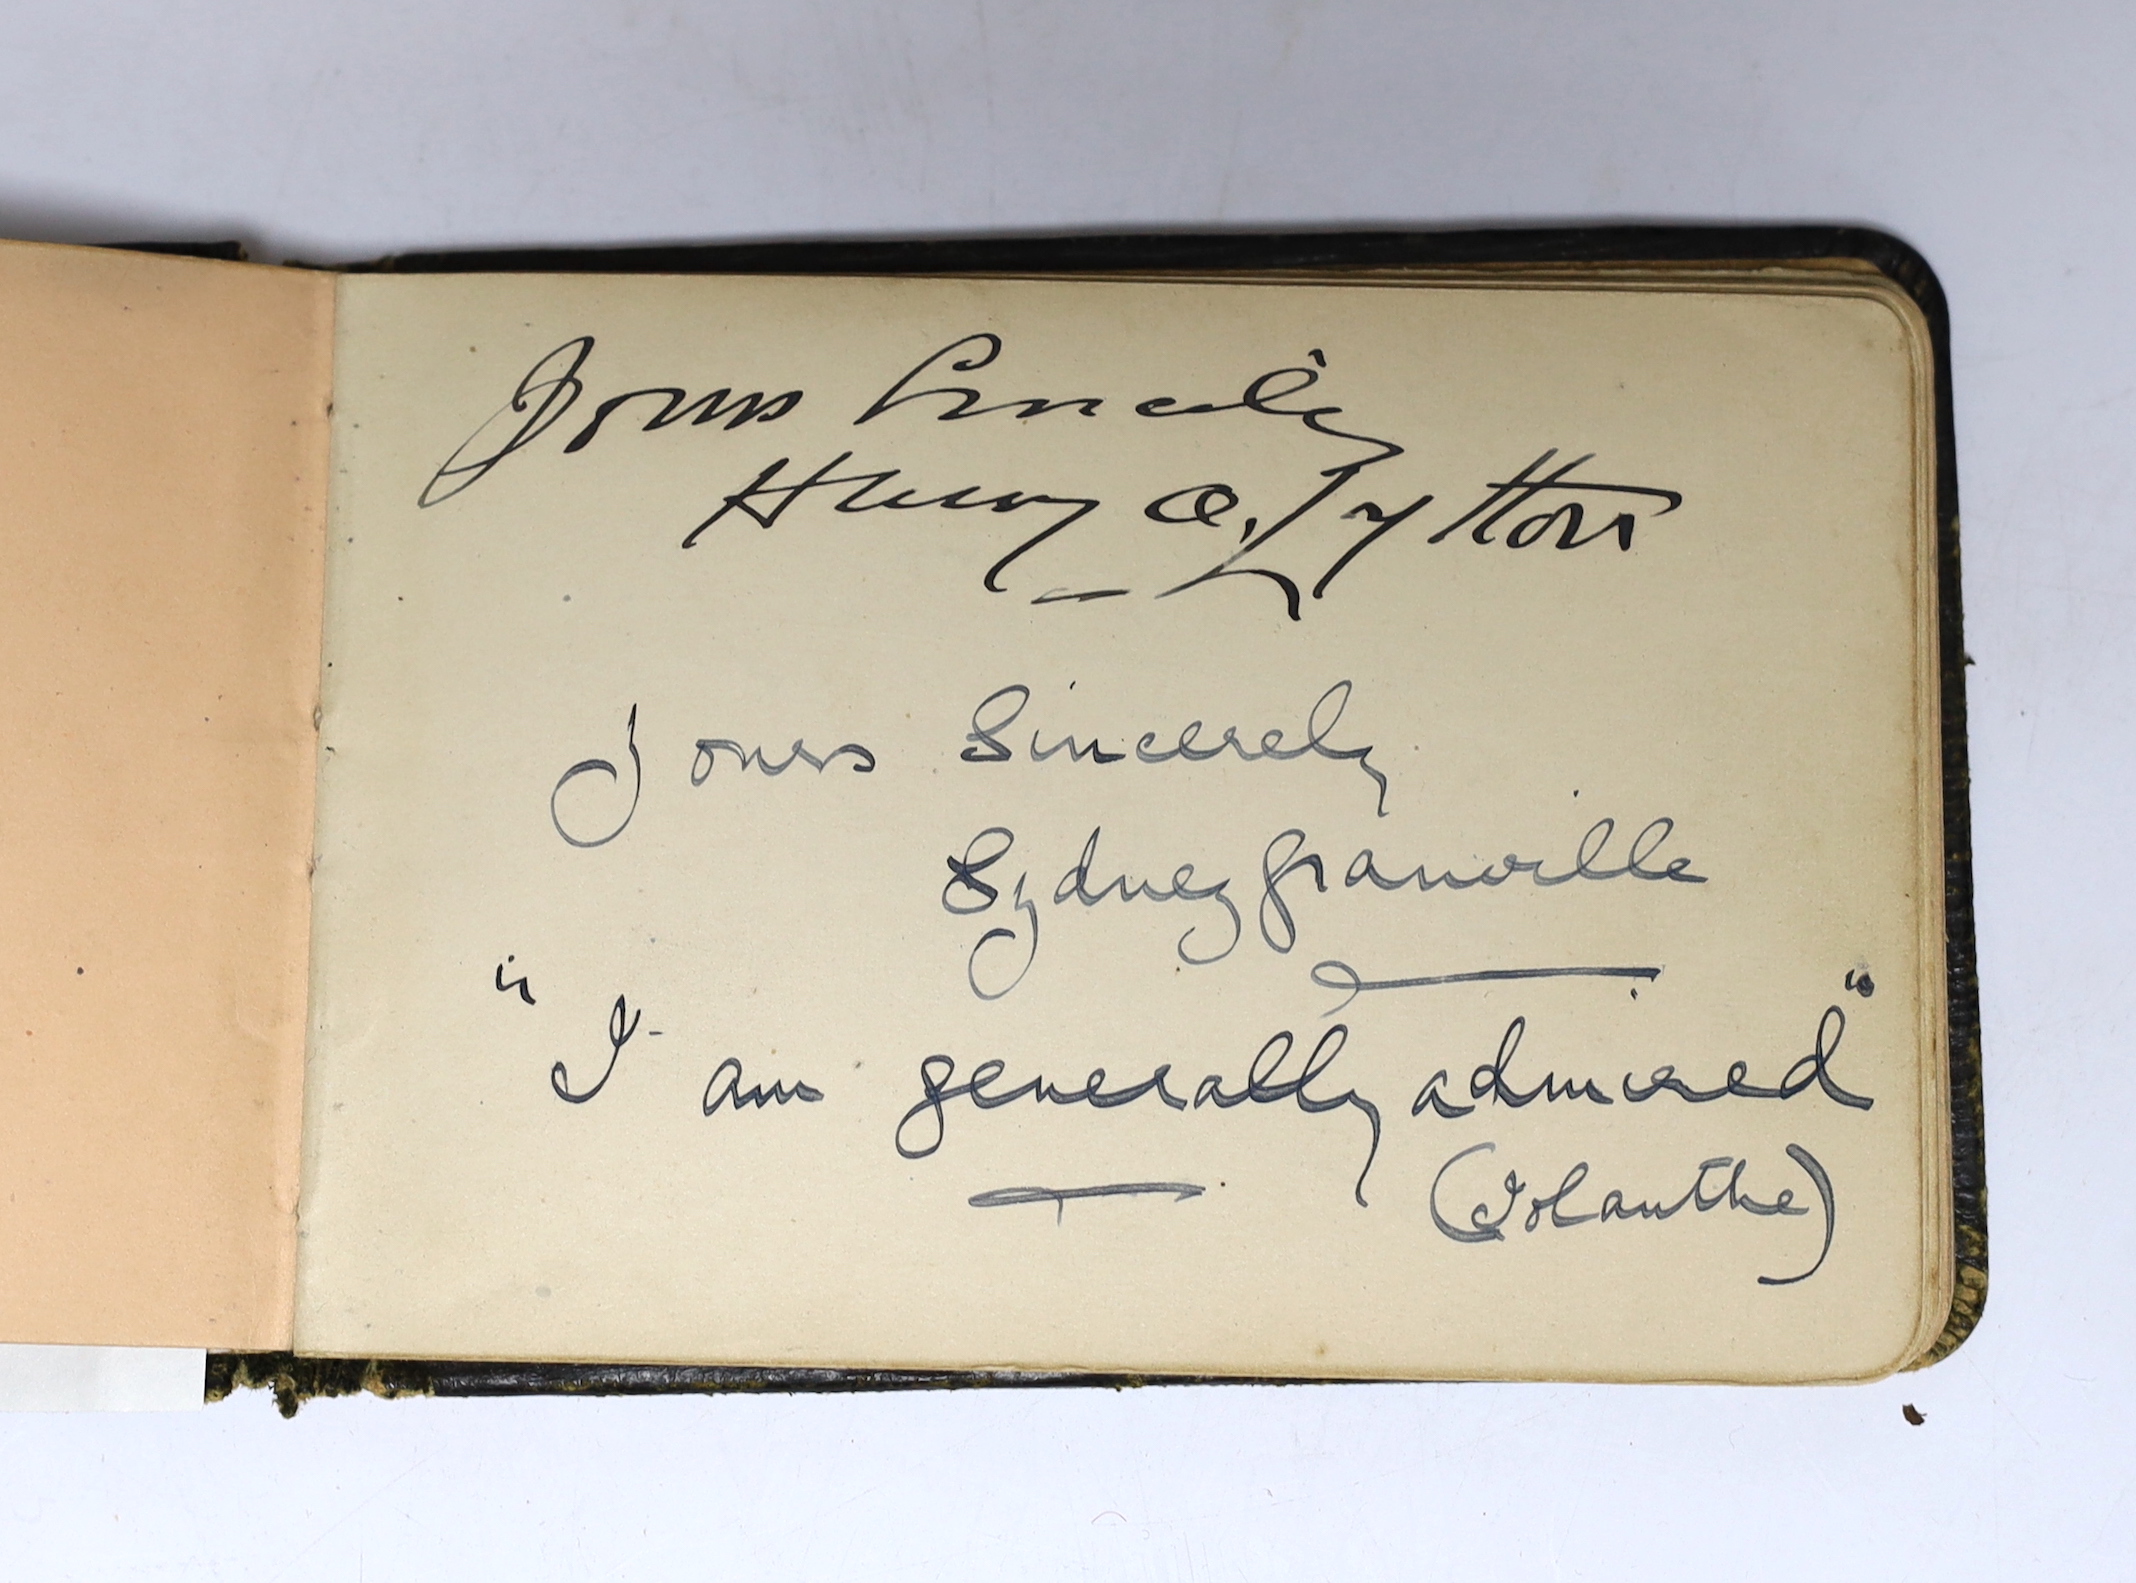 Yours Sincerely
Henry A. Lytton
Yours Sincerely
Sydney Granville
"I am generally admired"
(Iolanthe)